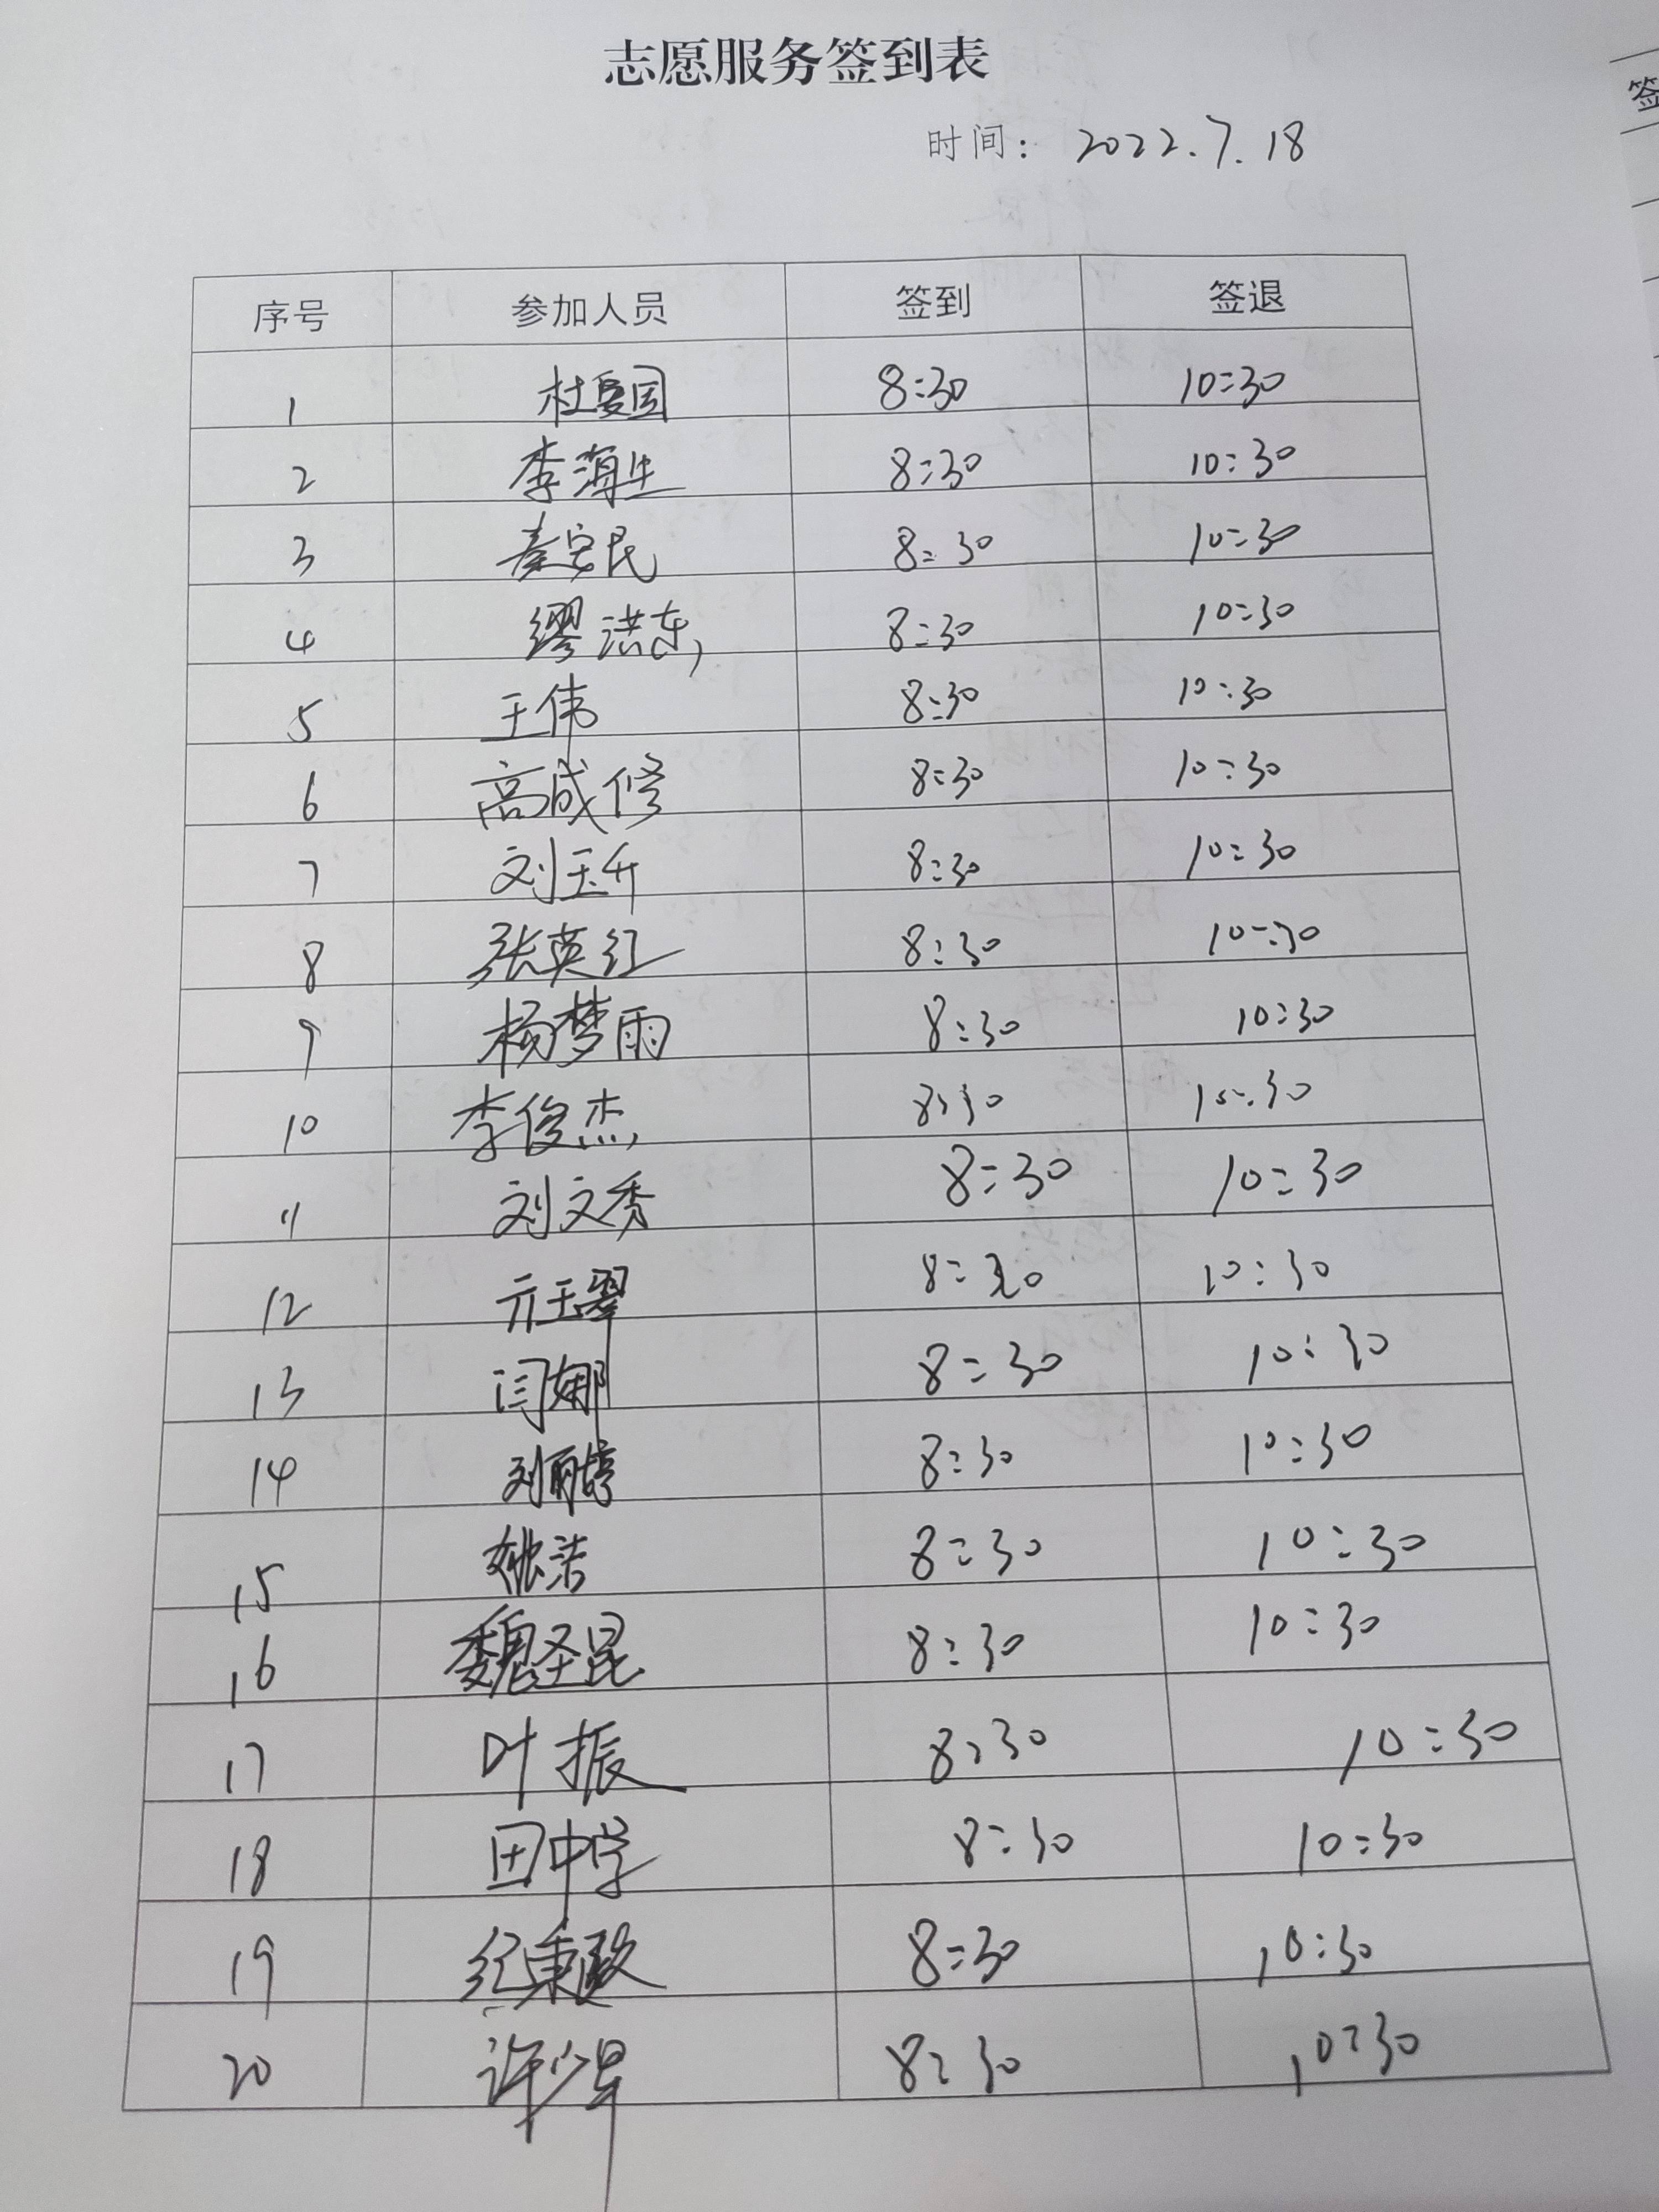 志愿服务签到表
时间： 2022.7.18
签
序号 参加人员 签到 签退
1 杜爱国 8:30 10:30
2 李海生 8:30 10:30
3 秦安民 8:30 10:30
4 缪洪东 8:30 10:30
5 王伟 8:30 10:30
6 高成修 8:30 10:30
7 刘玉升 8:30 10:30
8 张英红 8:30 10:30
9 杨梦雨 8:30 10:30
10 李俊杰 8:30 10:30
11 刘文秀 8:30 10:30
12 亓玉翠 8:30 10:30
13 闫娜 8:30 10:30
14 刘丽婷 8:30 10:30
15 姚洁 8:30 10:30
16 魏圣昆 8:30 10:30
17 叶振 8:30 10:30
18 田中学 8:30 10:30
19 纪秉政 8:30 10:30
20 8:30 10:30